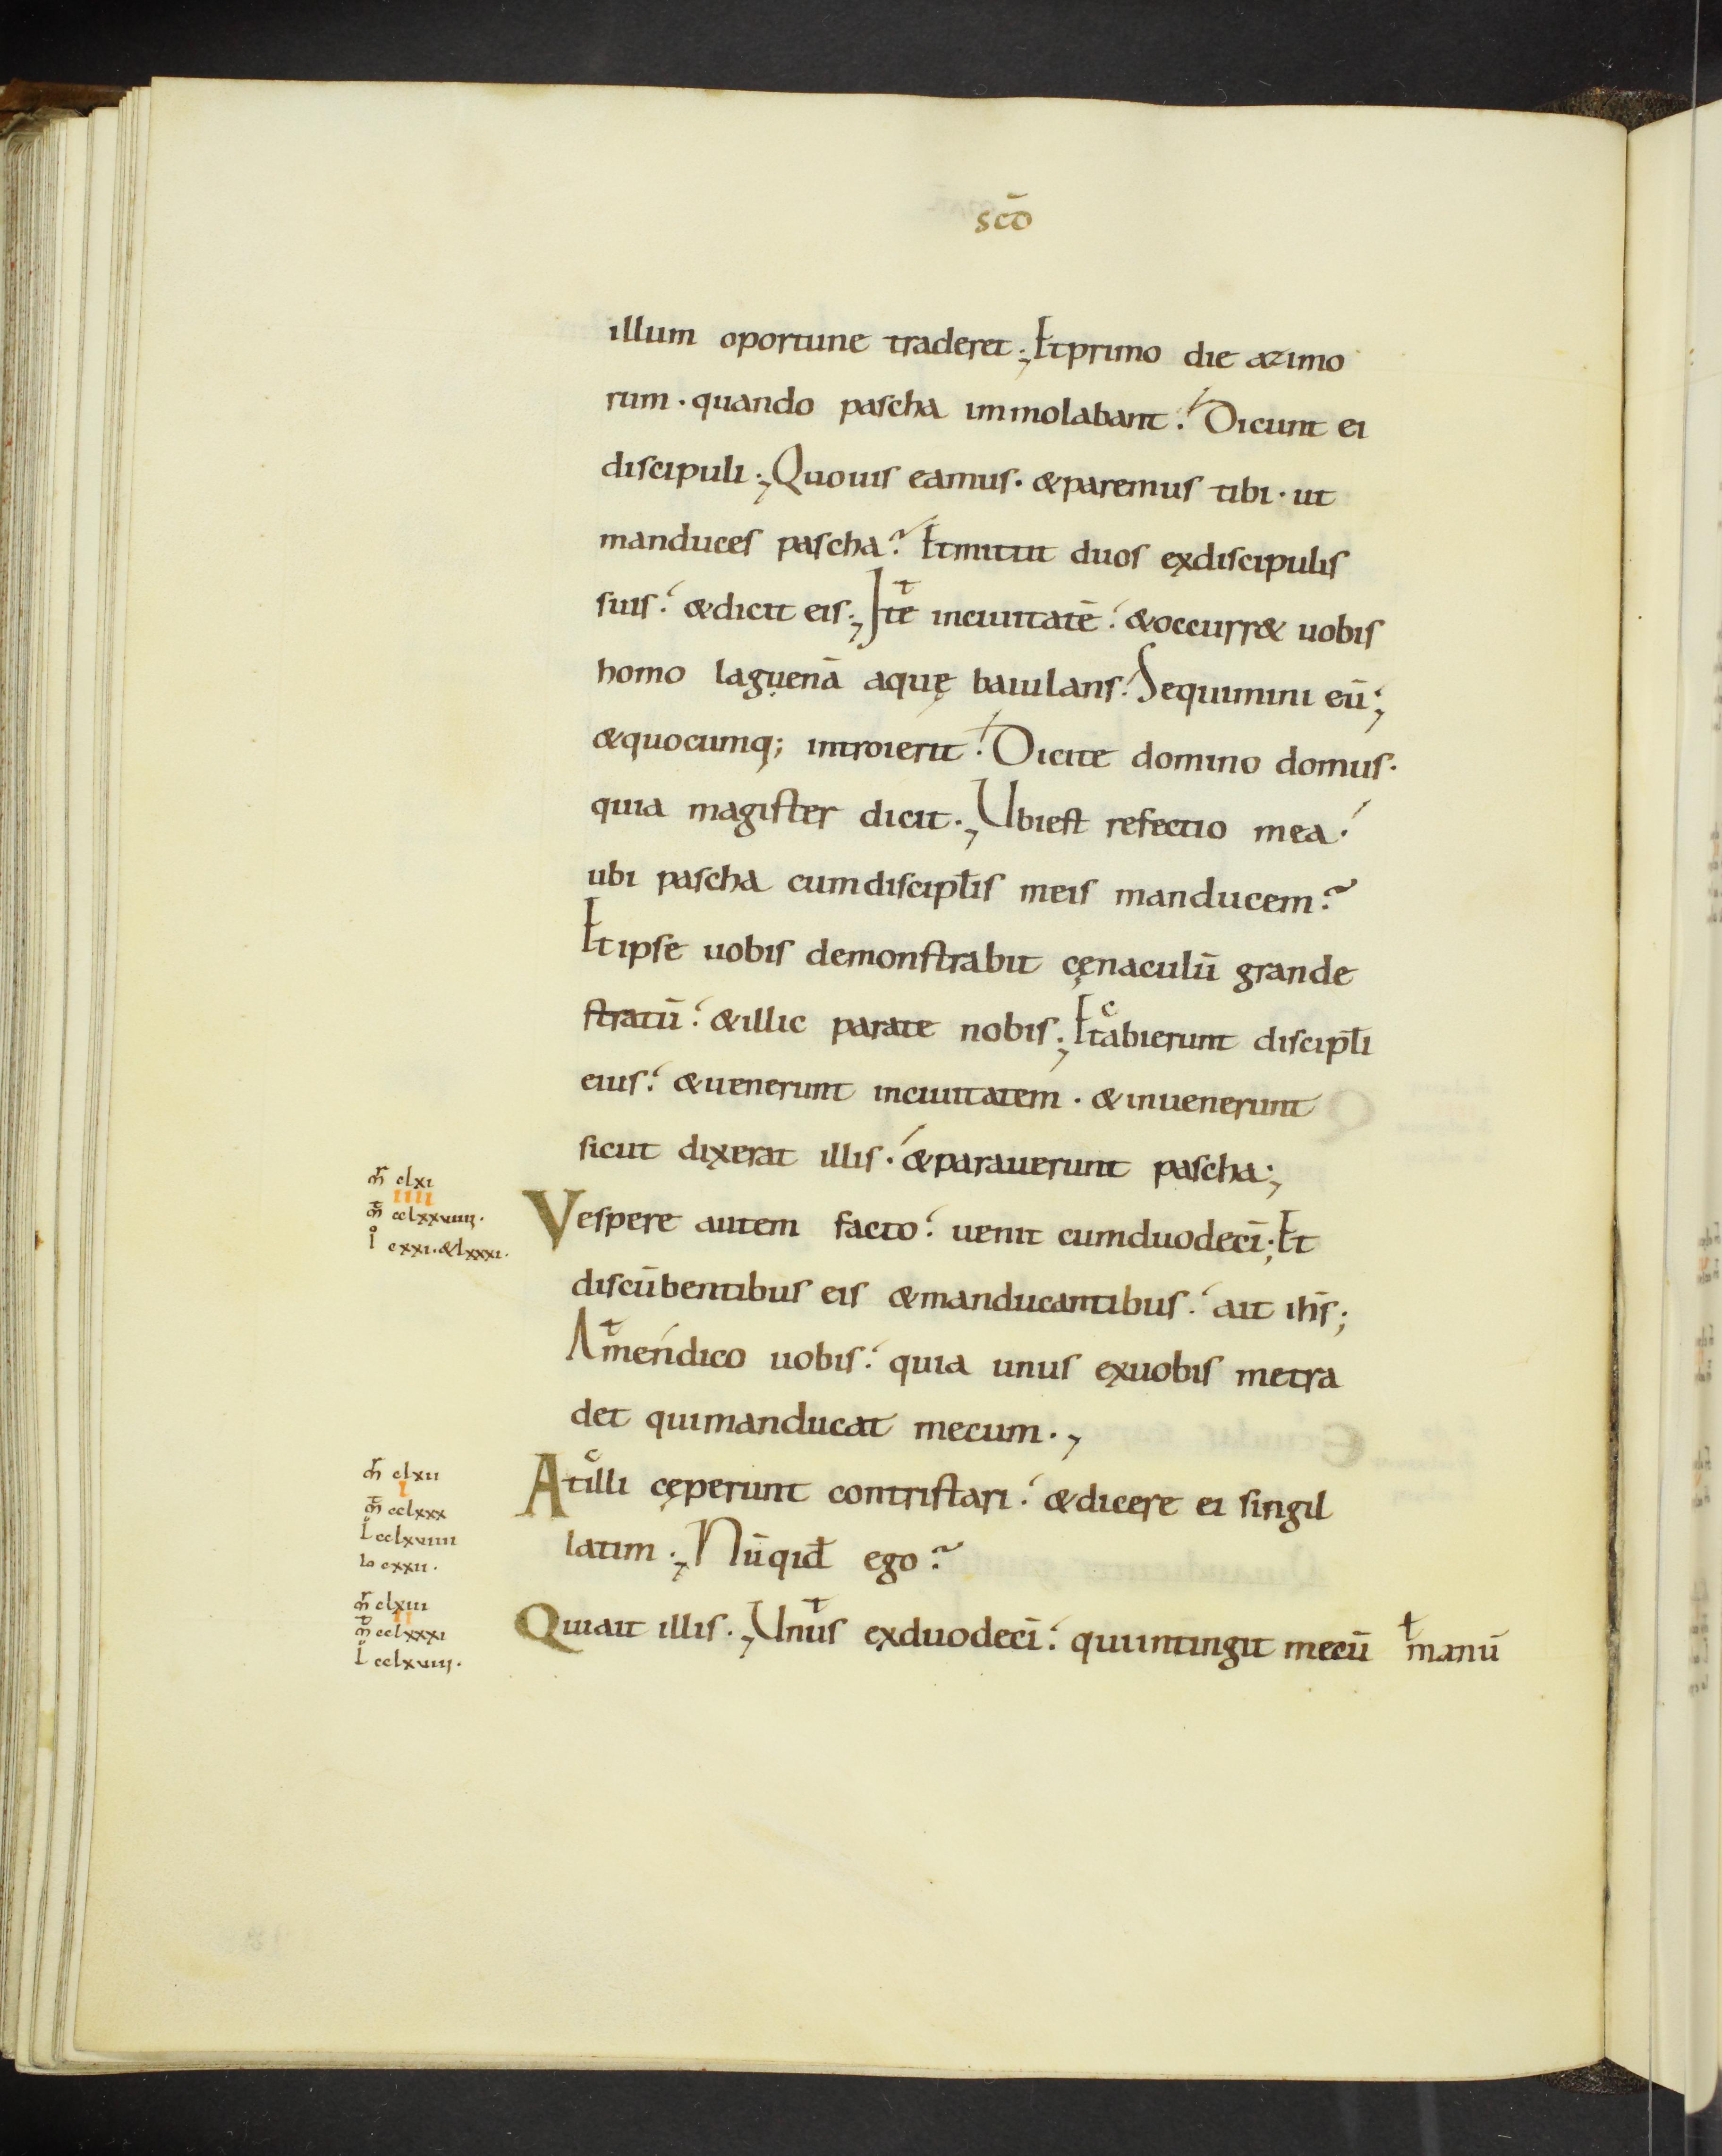 scō
illum oportune traderet; Et primo die azimo
rum · quando pascha immolabant. Dicunt ei
discipuli; Quo uis eamus · & paremus tibi · ut
manduces pascha? Et mittit duos ex discipulis
suis. & dicit eis; Ite in ciuitatē. & occurr& uobis
homo laguenā aquę baiulans. Sequimini eū;
& quocumq; introierit. Dicite domino domus ·
quia magister dicit; Ubi est refectio mea.
ubi pascha cum discipłis meis manducem?
Et ipse uobis demonstrabit cęnaculū grande
stratū. & illic parate nobis; Et abierunt discipłi
eius. & uenerunt in ciuitatem · & inuenerunt
sicut dixerat illis. & parauerunt pascha;
m̄r clxi
IIII
m̄t cclxxviiii.
io cxxi. & lxxxi.
Vespere autem facto. uenit cum duodecī; Et
discūbentibus eis & manducantibus. ait ih̄s;
Amen dico uobis. quia unus ex uobis me tra
det qui manducat mecum;
m̄r clxii
I
m̄t cclxxx
l cclxviiii
io cxxii.
At illi cęperunt contristari. & dicere ei singil
latim; Nūqid̄ ego?
m̄r clxiii
II
m̄t cclxxxi
l cclxviiii.
Qui ait illis; Unus ex duodecī. qui intingit mecū manū